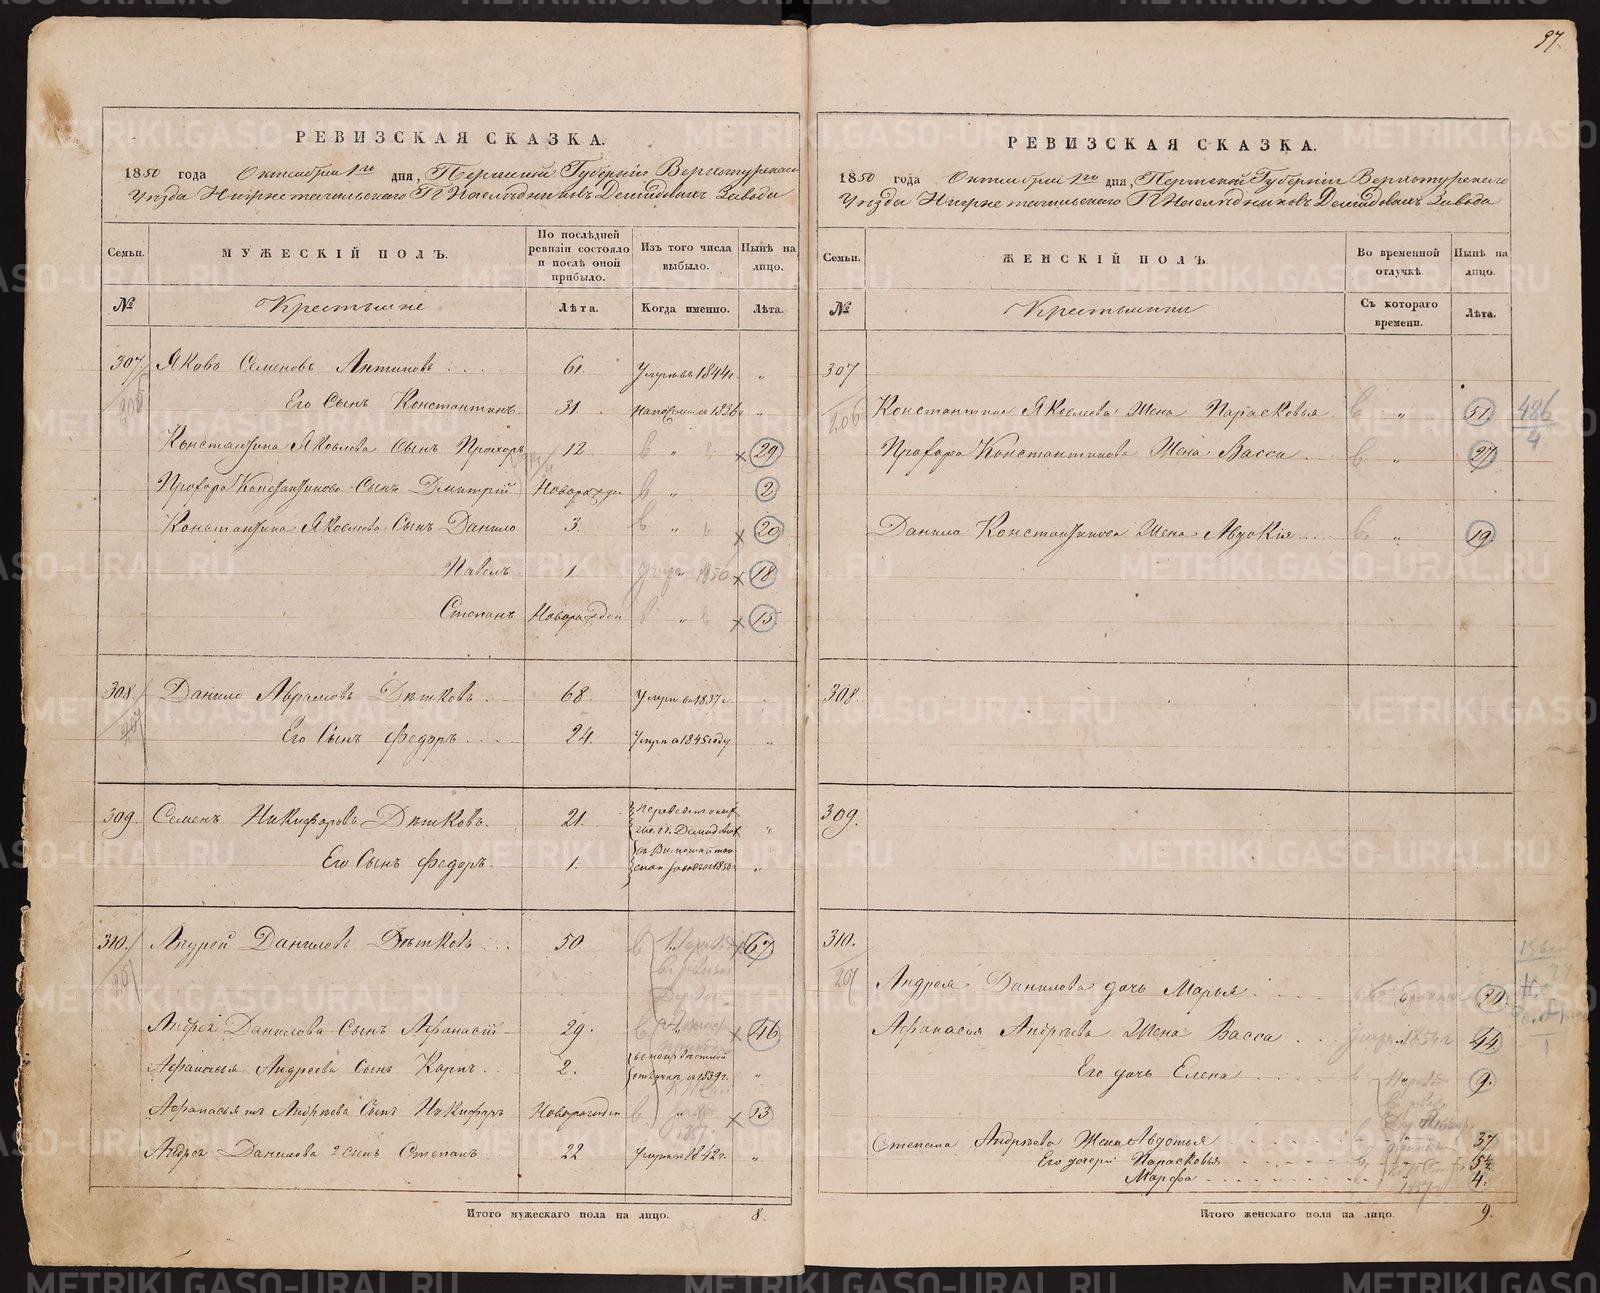 97.
РЕВИЗСКАЯ СКАЗКА.
1850 года Октября 1го дня, Пермской Губернiи Верхотурскаго
Уѣзда Нижнетагильскаго Гг Наслѣдниковъ Демидовыхъ Завода
Семьи.
МУЖЕСКІЙ ПОЛЪ.
По послѣдней ревизіи состояло и послѣ оной прибыло.
Изъ того числа выбыло.
Нынѣ на лицо.
№
Крестьяне
Лѣта.
Когда именно.
Лѣта.
307 Яковъ Семеновъ Антиповъ 61. Умеръ въ 1844г. „
206
Его Сынъ Константинъ 31. 1836 „
Константина Яковлева Сынъ Прохоръ 12 „ 29
Прохора Константинова Сынъ Дмитрiй Новорожден „ 2
Константина Яковлева Сынъ Данило 3. „ 20
Павелъ 1. умеръ 1856 18
Степанъ Новорожден „ 15
308. Данило Абрамовъ Дѣтковъ 68. Умеръ въ 1837г „
Его Сынъ Федоръ 24. Умеръ въ 1845 году „
309. Семенъ Никифоровъ Дѣтковъ. 21. Переведенъ Демидовых „
Его Сынъ Федоръ. 1. „
310. Андрей Даниловъ Дѣтковъ 50 67
207
Андрея Данилова Сынъ Афанасiй 29. 46
Афанасья Андреева Сынъ Карпъ 2. въ безизвѣстной отлучкѣ съ 1839г. „
Афанасья Андрѣева Сынъ Никифоръ Новорожден „ 13
1857
Андрея Данилова 2 сынъ Степанъ 22 Умеръ въ 1842г. „
Итого мужескаго пола на лицо. 8.
РЕВИЗСКАЯ СКАЗКА.
1850 года Октября 1го дня, Пермской Губернiи Верхотурскаго
Уѣзда Нижнетагильскаго Гг Наслѣдниковъ Демидовыхъ Завода
Семьи.
ЖЕНСКІЙ ПОЛЪ.
Во временной отлучкѣ.
Нынѣ на лицо.
№
Крестьянки
Съ котораго времени.
Лѣта.
307
206
Константина Яковлева Жена Парасковья „ 51
486
4
Прохора Константинова Жена Васса „ 27
Данила Константинова Жена Авдокiя „ 19
308.
309.
310.
207
Андрея Данилова дочь Марья 30
Афанасья Андрѣева Жена Васса умер. 1854г 44
Его дочь Елена 9.
Степана Андрѣева Жена Авдотья 37
Его дочери Парасковья 5½
Марфа 4.
1857г
Итого женскаго пола на лицо. 9.
METRIKI.GASO-URAL.RU